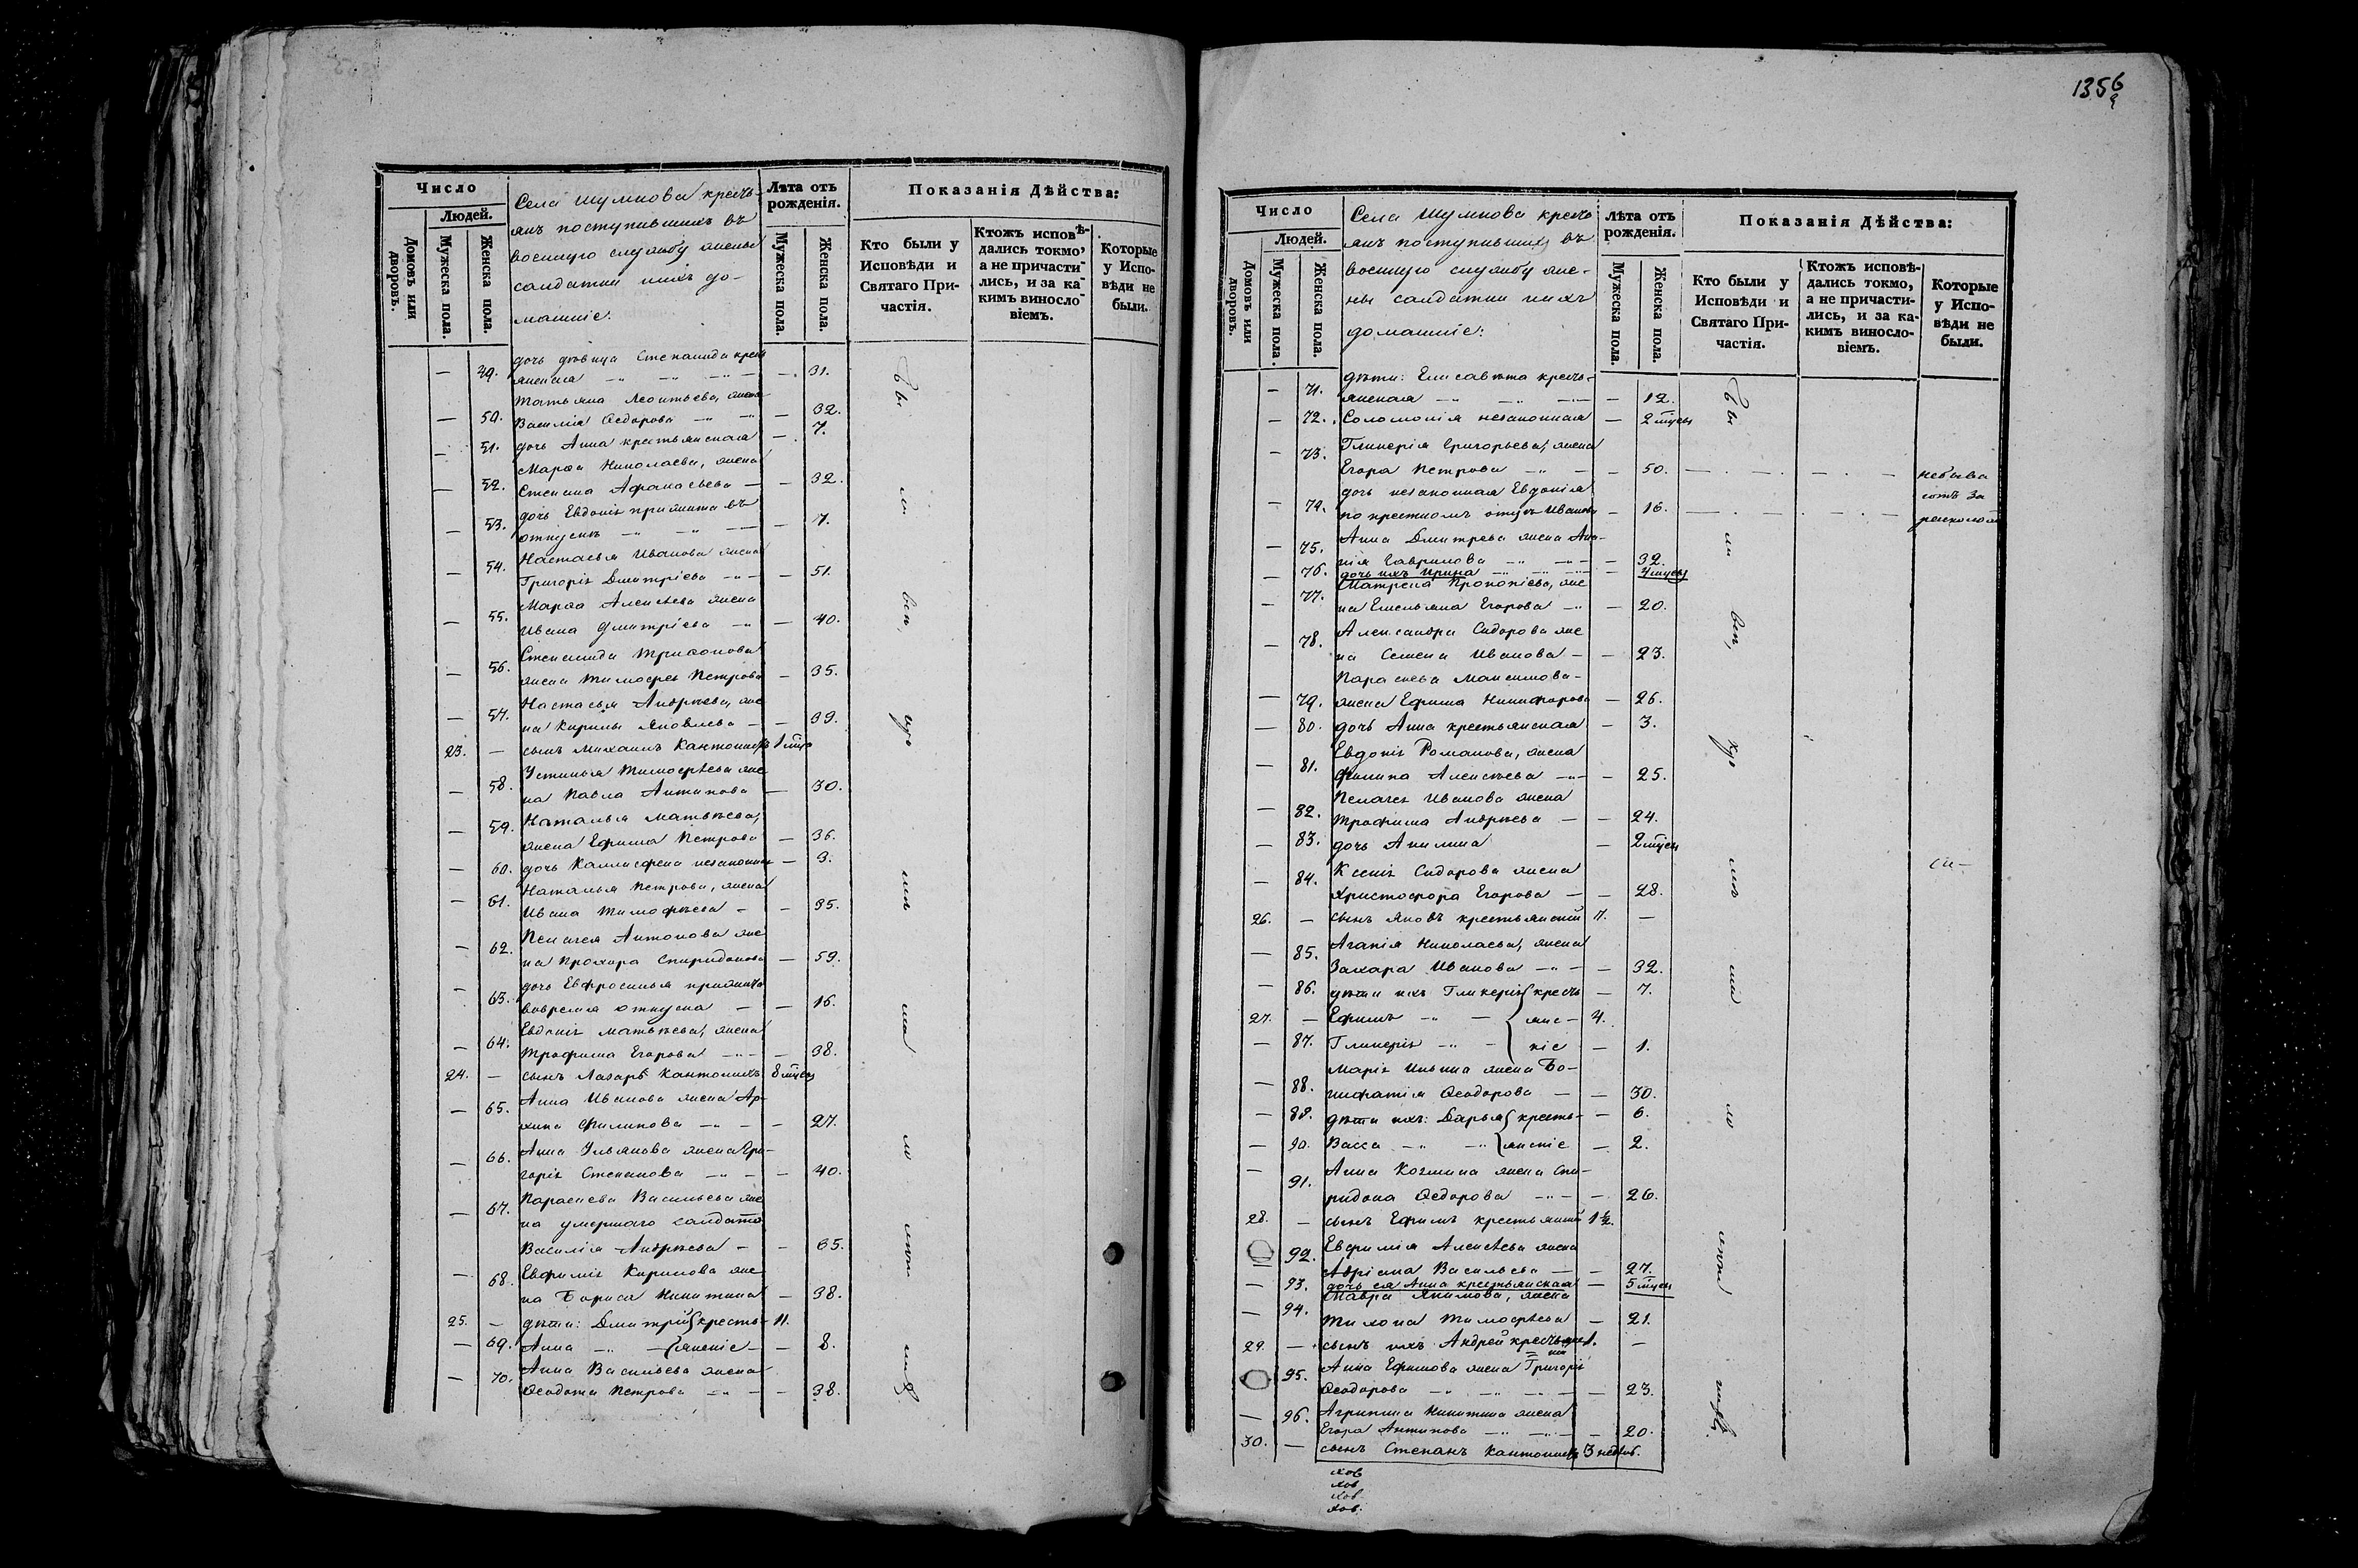 Число
Людей.
Домовъ или дворовъ.
Мужеска пола.
Женска пола.
Села Шумнова кресть-
янъ поступившихъ въ
военную службу жены
солдатки и ихъ до-
машніе:
Лѣта отъ рожденія.
Мужеска пола.
Женска пола.
Показанія Дѣйства:
Кто были у Исповѣди и Святаго При-
частія.
Ктожъ исповѣ-
дались токмо,
а не причасти-
лись, и за ка-
кимъ винословіемъ.
Которые
у Испо-
вѣди не
были.
— 49. дочь дѣвица Степанида кресть
янская — 31.
Татьяна Леонтьева, жена
— 50. Василія Ѳедорова — 32.
— 51. дочь Анна крестьянская — 7.
Марѳа Николаева, жена
— 52. Степана Афанасьева — 32.
дочь Евдокія прижита въ
— 53. отпускѣ — 7.
Настасья Иванова жена
— 54. Григорія Дмитріева — 51.
Марѳа Алексѣева жена
— 55. Ивана Дмитріева — 40.
Степанида Трифонова
— 56. жена Тимофея Петрова — 35.
Настасья Андрѣева, же
— 57. на Кирилы Яковлева — 39.
23. — сынъ Михаилъ Кантонистъ
Устинья Тимофѣева же
— 58. на Павла Антипова — 30.
Наталья Матвѣева,
— 59. жена Ефима Петрова — 36.
— 60. дочь Каллисфена незаконная — 3.
Наталья Петрова, жена
— 61. Ивана Тимофѣева — 35.
Пелагея Антонова же
— 62. на Прохора Спиридонова — 59.
дочь Евфросинья прижита
— 63. вовремя отпуска — 16.
Евдокія Матвѣева, жена
— 64. Трофима Егорова — 38.
24. — сынъ Лазарь Кантонистъ 8 мцевъ
Анна Иванова жена Ар-
— 65. хипа Филипова — 27.
Анна Ульянова жена Гри-
— 66. горія Степанова — 40.
Парасковья Васильева же
— 67. на умершаго солдата
Василія Андрѣева — 65.
Евфимія Кирилова же
— 68. на Бориса Никитина — 38.
25. — дѣти: Дмитрій кресть- 11.
— 69. Анна — янскіе — 8.
Анна Васильева жена
— 70. Ѳеодота Петрова — 38.
1356
Число
Людей.
Домовъ или дворовъ.
Мужеска пола.
Женска пола.
Села Шумнова кресть
янъ поступившихъ въ
военную службу же-
ны солдатки и ихъ
домашніе:
лѣта отъ рожденія.
Мужеска пола.
Женска пола.
Показанія Дѣйства:
Кто были у
Исповѣди и
Святаго При-
частія.
Ктожъ исповѣ-
дались токмо,
а не причасти-
лись, и за ка-
кимъ винослο-
віемъ.
Которые
у Испо-
вѣди не
были.
дѣти: Елисавета кресть-
— 71. янская — 12.
— 72. Соломонія незаконная — 2 мцевъ
Гликерія Григорьева, жена
— 73. Егора Петрова — 50.
небыва
ютъ за
расколом
дочь незаконная Евдокія
— 74. по крестномъ отцѣ Иванова — 16.
Анна Дмитрева жена Ана-
— 75. нія Гаврилова — 32.
— 76. дочь ихъ Ирина —
Матрена Прокопіева, же
— 77. на Емельяна Егорова — 20.
Александра Сидорова же
— 78. на Семена Иванова — 23.
Парасковья Максимова
— 79. жена Ефима Никифорова — 26.
— 80. дочь Анна крестьянская — 3.
Евдокія Романова, жена
— 81. Филипа Алексѣева — 25.
Пелагея Иванова жена
— 82. Трофима Андрѣева — 24.
— 83. дочь Акилина — 2 мцевъ
Ксенія Сидорова жена
— 84. Христофора Егорова — 28.
26. — сынъ Яковъ крестьянский 7. —
Агапія Николаева, жена
— 85. Захара Иванова — 32.
— 86. дѣти ихъ Гликерія кресть — 7.
27. — Ефимъ — янс- 4.
— 87. Гликерія — кіе — 1.
Марія Ильина жена Бо-
— 88. нифатія Ѳеодорова — 30.
— 89. дѣти ихъ: Дарья кресть- — 6.
— 90. Васса — янскіе — 2.
Анна Козмина жена Спи-
— 91. ридона Ѳедорова — 26.
28. — сынъ Ефимъ 1½.
Евфимія Алексѣева жена
92. Адріана Васильева — 27.
— 93. дочь ея Анна крестьянская — 5 мцев
Мавра Якимова, жена
— 94. Тихона Тимофѣева — 21.
29. — сынъ ихъ Андрей 1. —
Анна Ефимова жена Григорія
95. Ѳеодорова — 23.
Агрипина Никитина жена
— 96. Егора Антипова — 20.
30. — сынъ Степанъ Кантонистъ 3 нед